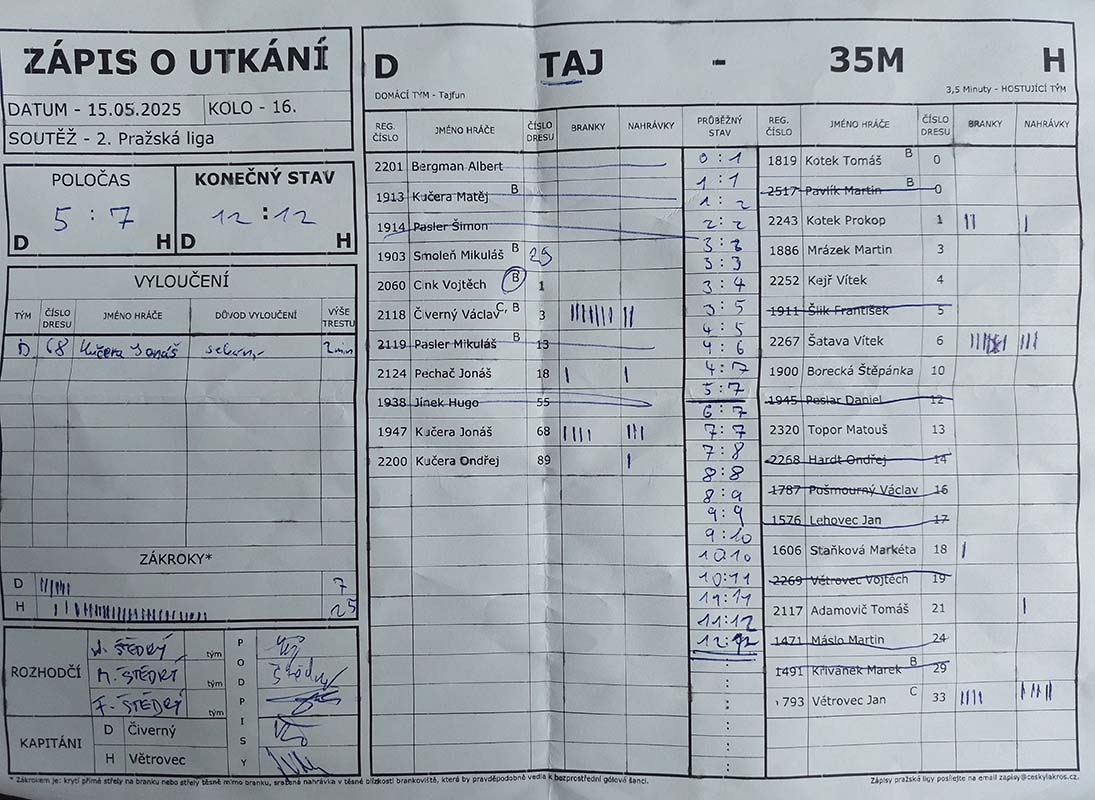 ZÁPIS O UTKÁNÍ
DATUM - 15.05.2025 KOLO - 16.
SOUTĚŽ - 2. Pražská liga
POLOČAS KONEČNÝ STAV
5 : 7 12 : 12
D H D H
VYLOUČENÍ
TÝM ČÍSLO DRESU JMÉNO HRÁČE DŮVOD VYLOUČENÍ VÝŠE TRESTU
D 68 Kučera Jonáš 2min
ZÁKROKY*
D 7
H 25
ROZHODČÍ
ŠTĚDRÝ tým
M. ŠTĚDRÝ tým
F. ŠTĚDRÝ tým
PODPISY
KAPITÁNI
D Čiverný
H Větrovec
D TAJ - 35M H
DOMÁCÍ TÝM - Tajfun 3,5 Minuty - HOSTUJÍCÍ TÝM
REG. ČÍSLO JMÉNO HRÁČE ČÍSLO DRESU BRANKY NAHRÁVKY
2201 Bergman Albert
1913 Kučera Matěj B
1914 Pasler Šimon
1903 Smoleň Mikuláš B 25
2060 Cink Vojtěch B 1
2118 Čiverný Václav C, B 3
2119 Pasler Mikuláš B 13
2124 Pechač Jonáš 18
1938 Jínek Hugo 55
1947 Kučera Jonáš 68
2200 Kučera Ondřej 89
PRŮBĚŽNÝ STAV
0 : 1
1 : 1
1 : 2
2 : 2
3 : 3
3 : 4
3 : 5
4 : 5
4 : 6
4 : 7
5 : 7
6 : 7
7 : 7
7 : 8
8 : 8
8 : 9
9 : 9
9 : 10
10 : 10
10 : 11
11 : 11
11 : 12
12 : 12
REG. ČÍSLO JMÉNO HRÁČE ČÍSLO DRESU BRANKY NAHRÁVKY
1819 Kotek Tomáš B 0
2517 Pavlík Martin B 0
2243 Kotek Prokop 1
1886 Mrázek Martin 3
2252 Kejř Vítek 4
1911 Šlik František 5
2267 Šatava Vítek 6
1900 Borecká Štěpánka 10
1945 Peslar Daniel 12
2320 Topor Matouš 13
2268 Hardt Ondřej 14
1787 Pošmourný Václav 16
1576 Lehovec Jan 17
1606 Staňková Markéta 18
2269 Větrovec Vojtěch 19
2117 Adamovič Tomáš 21
1471 Máslo Martin 24
1491 Křivánek Marek B 29
793 Větrovec Jan C 33
* Zákrokem je: krytí přímé střely na branku nebo střely těsně mimo branku, sražená nahrávka v těsné blízkosti brankoviště, která by pravděpodobně vedla k bezprostřední gólové šanci.
Zápisy pražské ligy posílejte na email zapisy@ceskylakros.cz.